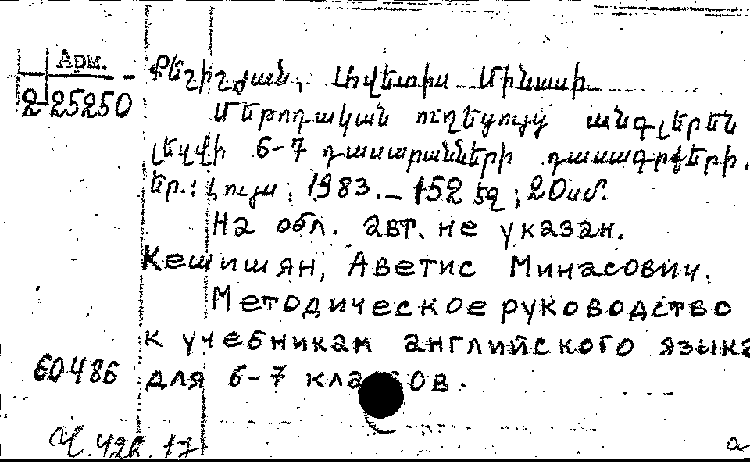 Арм.
2 25250
Քեշիշյան, Ավետիս Մինասի
Մեթոդական ուղեցույց անգլերեն
լեզվի 6-7 դասարանների դասագրքերի.
Եր.: Լույս, 1983. – 152 էջ; 20 սմ.
На обл. авт. не указан.
Кешишян, Аветис Минасович.
Методическое руководство
к учебникам английского языка
60486 для 6-7 классов.